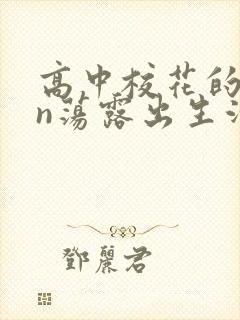 高中校花的
n荡露出生活
鄧麗君